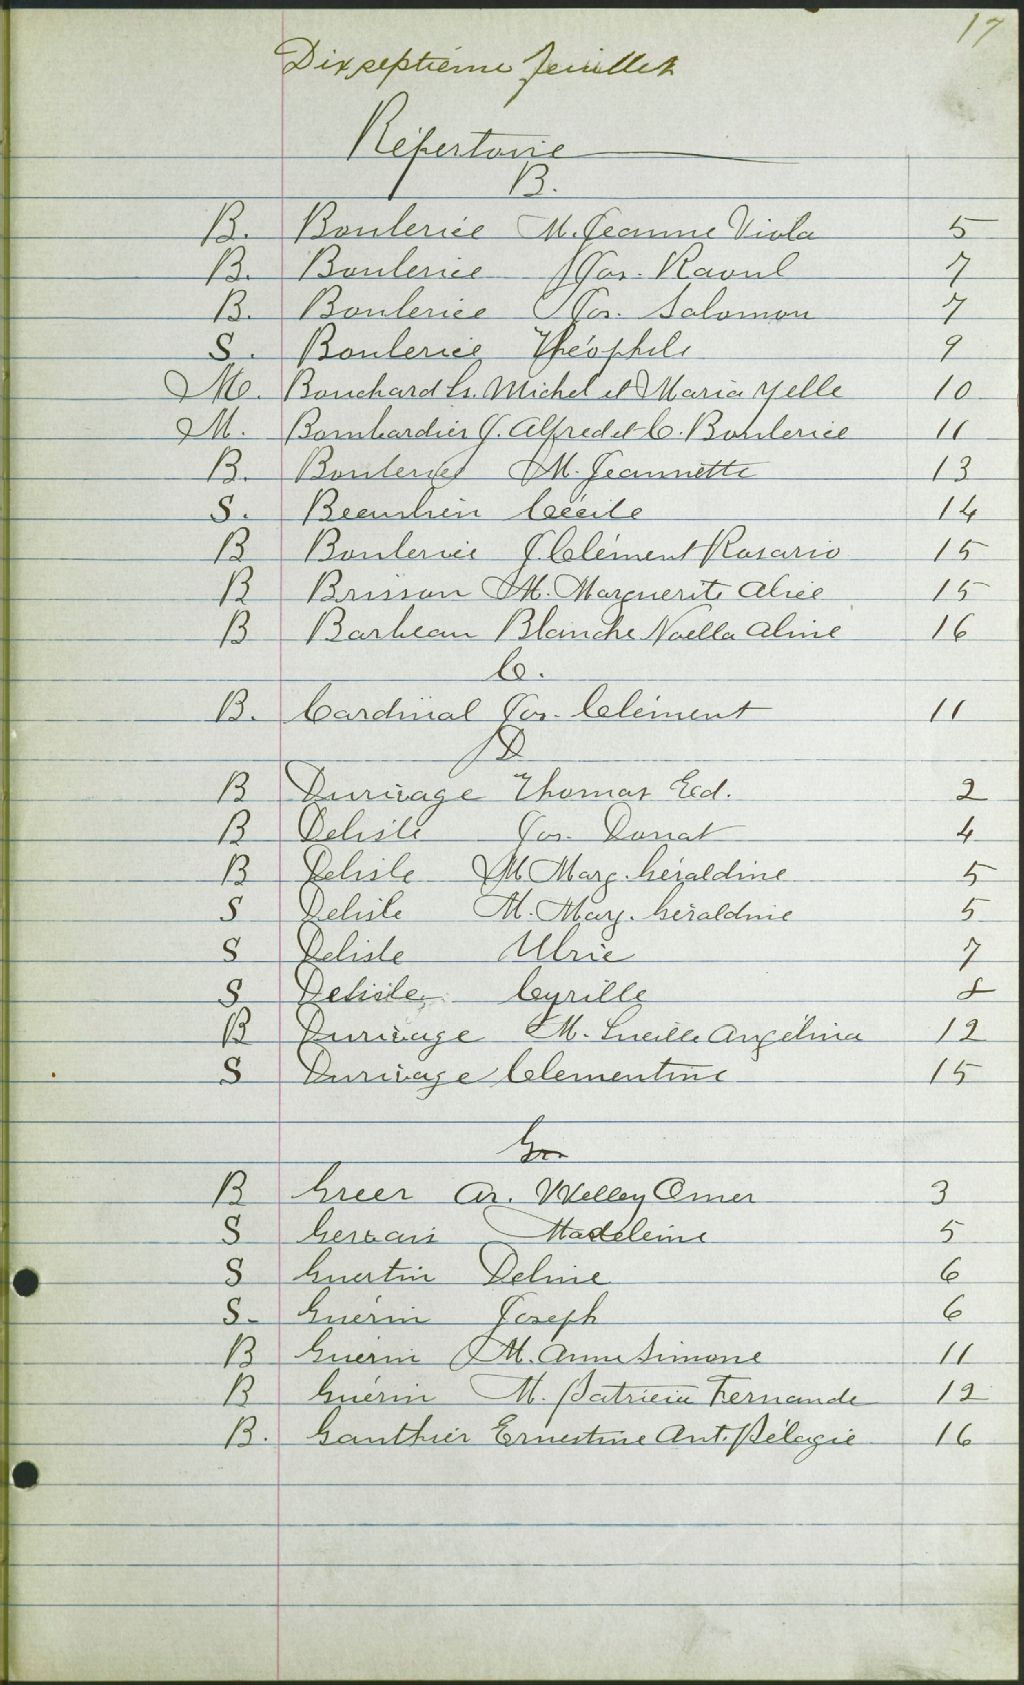 17
Dixseptième feuillet
Répertoire
B.
B. Boulerice M. Jeanne Viola 5
B. Boulerice Jos. Raoul 7
B. Boulerice Jos. Salomon 7
S. Boulerice Théophile 9
M. Bouchard Ls. Michel et Maria Yelle 10
M. Bombardier J. Alfred et C. Boulerice 11
B. Boulerice M. Jeannette 13
S. Beaulieu Cécile 14
B Boulerice J. Clément Rosario 15
B Brisson M. Marguerite Alice 15
B Barbeau Blanche Noella Aline 16
C.
B. Cardinal Jos. Clément 11
D
B Durivage Thomas Ed. 2
B Delisle Jos. Donat 4
B Delisle M Marg. Géraldine 5
S Delisle M. Marg. Géraldine 5
S Delisle Ulric 7
S Delisle Cyrille 8
B Durivage M. Lucille Angélina 12
S Durivage Clementine 15
G.
B Greer Ar. Welley Omer 3
S Gervais Madeleine 5
S Guertin Deline 6
S- Guérin Joseph 6
B Guérin M. Anne Simone 11
B Guérin M. Patricia Fernande 12
B. Gauthier Ernestine Ant. Pélagie 16